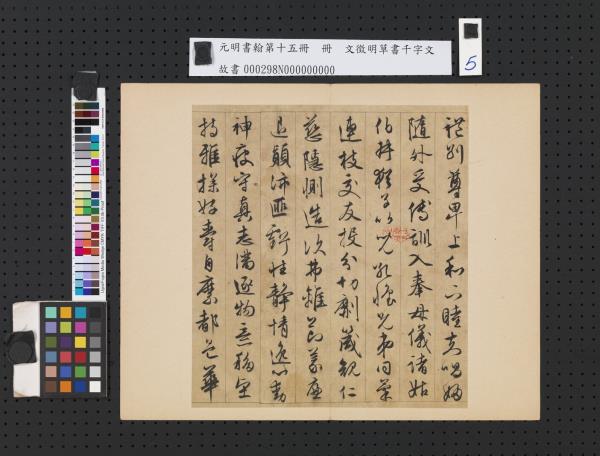 元明書翰第十五冊　冊　文徵明草書千字文
故書 000298N000000000
5
禮別尊卑上和下睦夫唱婦
隨外受傅訓入奉母儀諸姑
伯叔猶子比兒孔懷兄弟同氣
連枝交友投分切磨箴規仁
慈隱惻造次弗離節義廉
退顛沛匪虧性靜情逸心動
神疲守真志滿逐物意移堅
持雅操好爵自縻都邑華